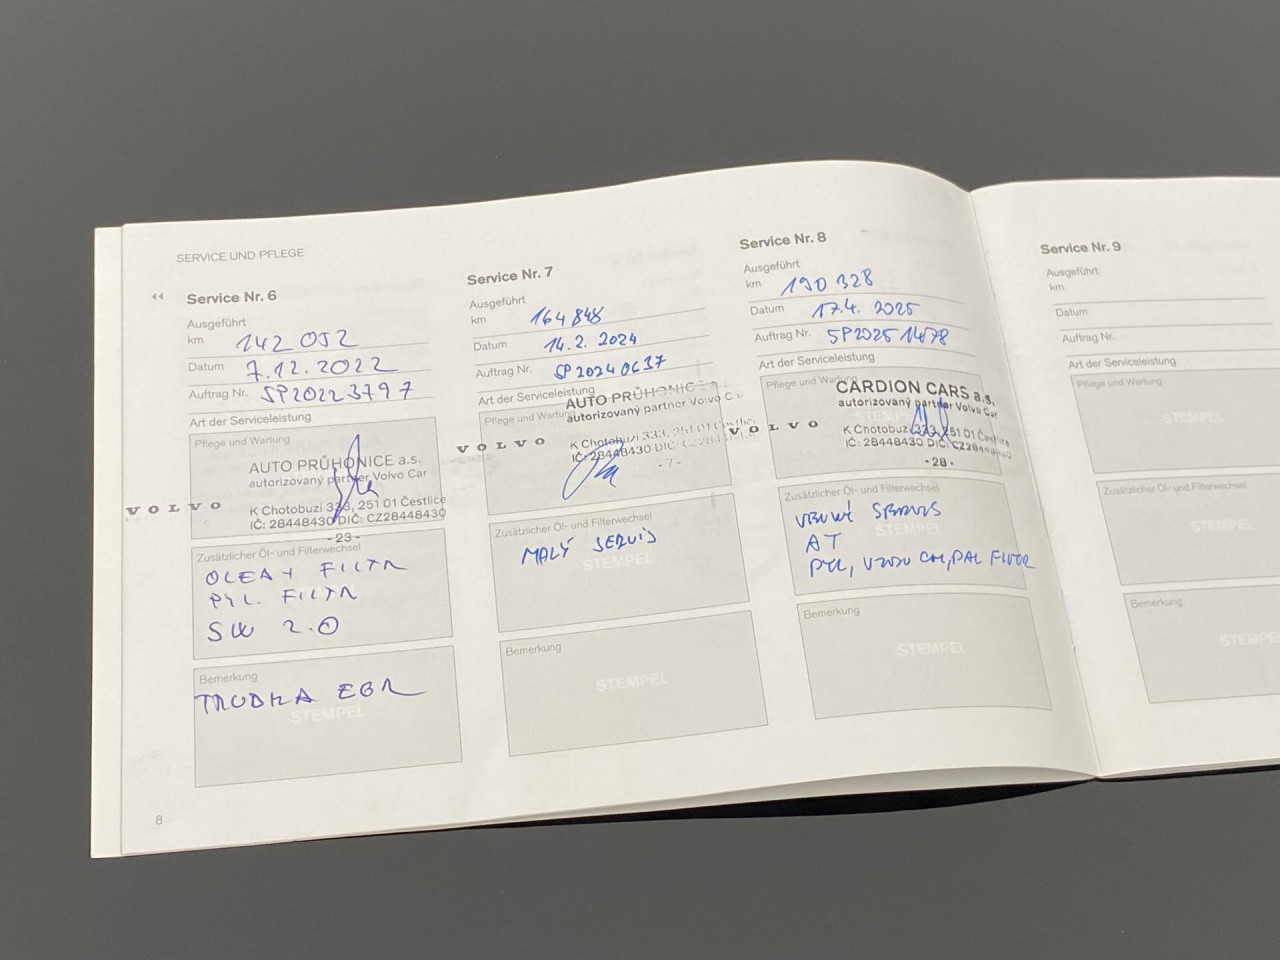 SERVICE UND PFLEGE
Service Nr. 6
Ausgeführt
km 142 052
Datum 7.12.2022
Auftrag Nr. SP20223797
Art der Serviceleistung
Pflege und Wartung
VOLVO
AUTO PRŮHONICE a.s.
autorizovaný partner Volvo Car
K Chotobuzi 333, 251 01 Čestlice
IČ: 28448430 DIČ: CZ28448430
- 23 -
Zusätzlicher Öl- und Filterwechsel
OLEJ + FILTR
PYL. FILTR
SW 2.0
Bemerkung
TRUBKA EGR
STEMPEL
8
Service Nr. 7
Ausgeführt
km 164 848
Datum 14.2.2024
Auftrag Nr. SP20240637
Art der Serviceleistung
Pflege und Wartung
VOLVO
AUTO PRŮHONICE a.
autorizovaný partner Volvo C
K Chotobuzi 333, 251 01 Čestlice
IČ: 28448430 DIČ: CZ2844
- 7 -
Zusätzlicher Öl- und Filterwechsel
MALÝ SERVIS
STEMPEL
Bemerkung
STEMPEL
Service Nr. 8
Ausgeführt
km 190 328
Datum 17.4.2025
Auftrag Nr. SP20251478
Art der Serviceleistung
Pflege und Wartung
VOLVO
CARDION CARS a.s.
autorizovaný partner Volvo Car
K Chotobuzi 333, 251 01 Čestlice
IČ: 28448430 DIČ: CZ28448430
- 28 -
Zusätzlicher Öl- und Filterwechsel
SERVIS
STEMPEL
AT
PYL, VZDUCH, PAL FILTR
Bemerkung
STEMPEL
Service Nr. 9
Ausgeführt
km
Datum
Auftrag Nr.
Art der Serviceleistung
Pflege und Wartung
STEMPEL
Zusätzlicher Öl- und Filterwechsel
STEMPEL
Bemerkung
STEMPEL